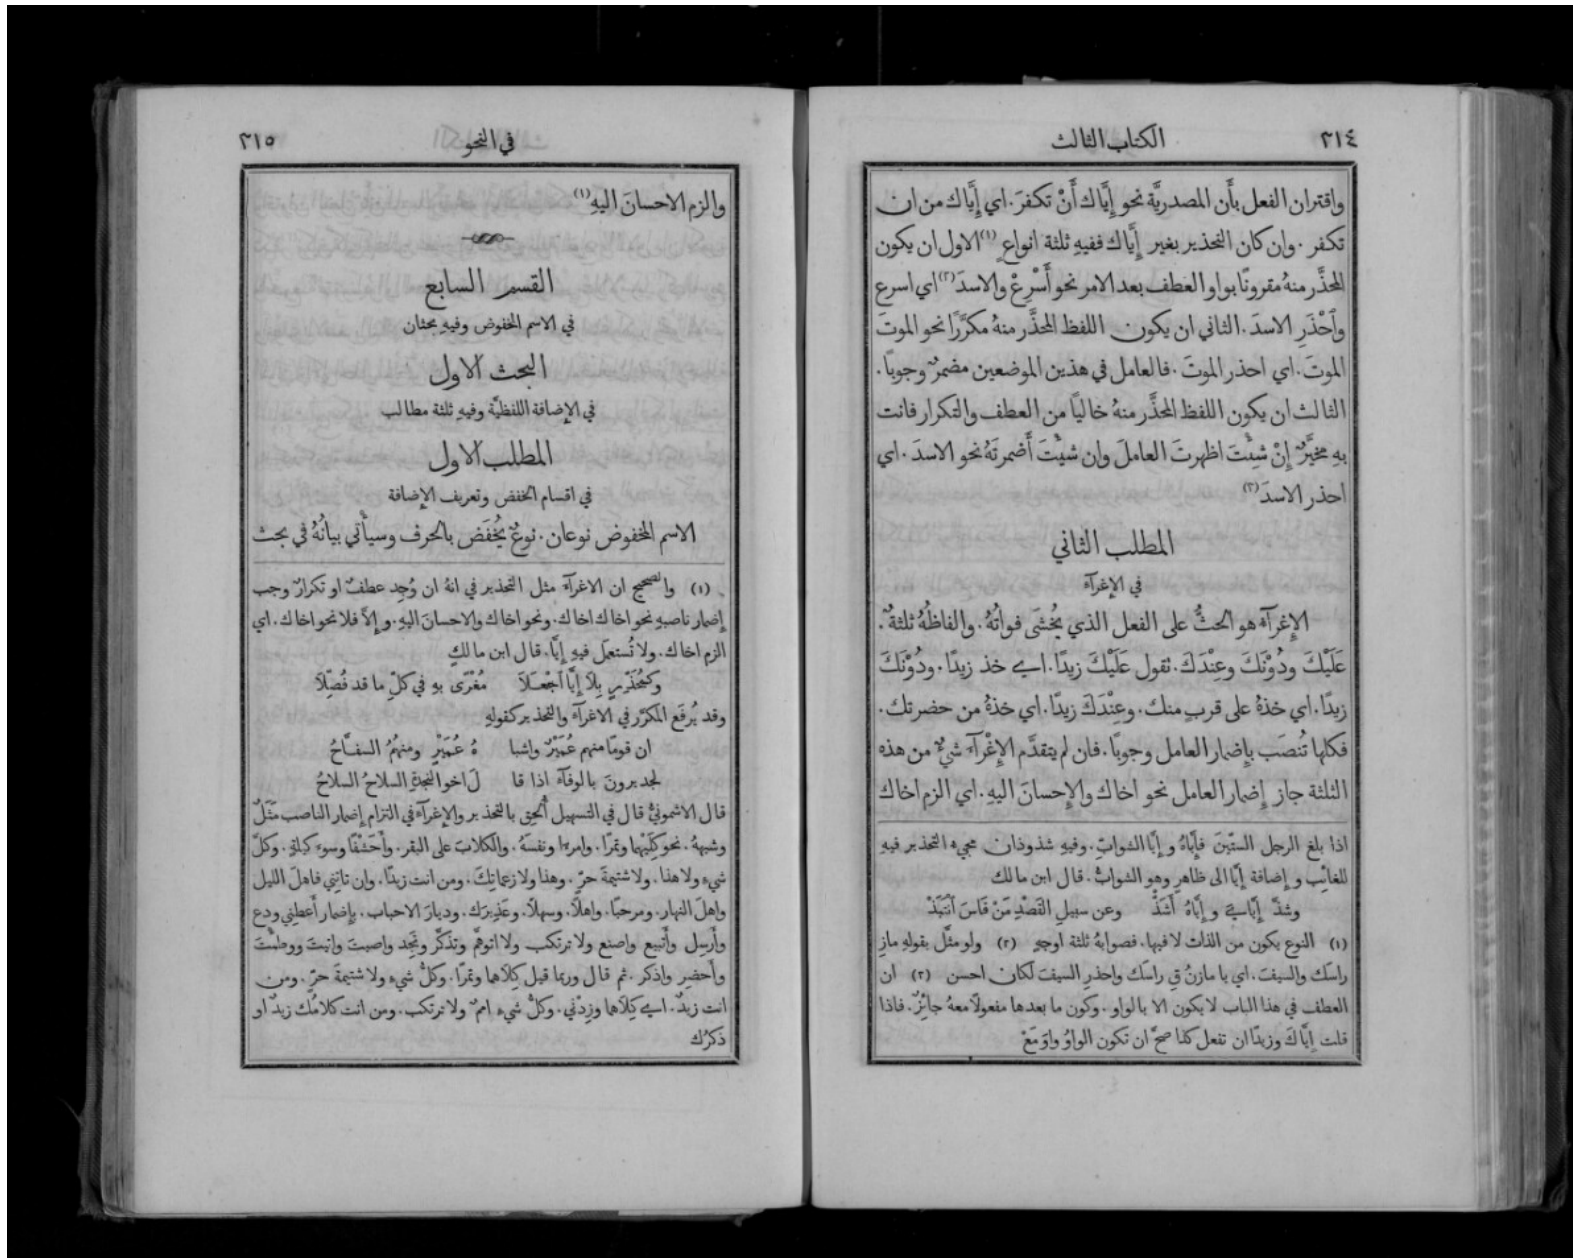 ٢١٤
الكتاب الثالث
واقتران الفعل بأَن المصدريَّة نحو إِيَّاك أَنْ تكفرَ. اي إِيَّاك من ان
تكفر. وان كان التحذير بغير إِيَّاك ففيهِ ثلثة انواعٍ (١) الاول ان يكون
المحذَّر منهُ مقرونًا بواو العطف بعد الامر نحو أَسْرِعْ والاسدَ (٢) اي اسرع
وٱحْذَرِ الاسدَ. الثاني ان يكون اللفظ المحذَّر منهُ مكرَّرًا نحو الموتَ
الموتَ. اي احذر الموتَ. فالعامل في هذين الموضعين مضمرٌ وجوبًا.
الثالث ان يكون اللفظ المحذَّر منهُ خاليًا من العطف والتكرار فانت
بهِ مخيَّرٌ إِنْ شِئْتَ اظهرتَ العاملَ وان شئْتَ أَضمرتَهُ نحو الاسدَ. اي
احذر الاسدَ (٣)
المطلب الثاني
في الإغرآء
الإِغرآء هو الحثُّ على الفعل الذي يُخْشَى فواتُهُ. والفاظُهُ ثلثةٌ.
عَلَيْكَ ودُوْنَكَ وعِنْدَكَ. تقول عَلَيْكَ زيدًا. اي خذ زيدًا. ودُوْنَكَ
زيدًا. اي خذهُ على قربٍ منك. وعِنْدَكَ زيدًا. اي خذهُ من حضرتك.
فكلها تُنصَب بإِضمار العامل وجوبًا. فان لم يتقدَّم الإِغْرآءَ شيءٌ من هذه
الثلثة جاز إِضمار العامل نحو اخاك والإِحسانَ اليهِ. اي الزم اخاك
اذا بلغ الرجل الستّينَ فإِيَّاهُ وإِيَّا الشوابِّ. وفيهِ شذوذان مجيء التحذير فيهِ
للغائِب وإضافة إِيَّا الى ظاهرٍ وهو الشوابّ. قال ابن مالك
وشذّ إِيَّايَ وإِيَّاهُ أَشَذّْ وعن سبيلِ القَصْدِ مَنْ قَاسَ ٱنْتَبَذْ
(١) النوع يكون من الذات لا فيها. فصوابهُ ثلثة اوجهٍ (٢) ولو مثَّل بقولهِ مازِ
راسَك والسيفَ. اي يا مازنُ قِ راسَك واحذرِ السيفَ لكان احسن (٣) ان
العطف في هذا الباب لا يكون الا بالواو. وكون ما بعدها مفعولًا معهُ جائزٌ. فاذا
قلت إِيَّاكَ وزيدًا ان تفعل كذا صحَّ ان تكون الواوُ واوَ مَعْ
في النحو
٢١٥
والزم الاحسانَ اليهِ (١)
القسم السابع
في الاسم المخفوض وفيهِ بحثان
البحث الاول
في الإضافة اللفظيَّة وفيهِ ثلثة مطالب
المطلب الاول
في اقسام الخفض وتعريف الإضافة
الاسم المخفوض نوعان. نوعٌ يُخْفَض بالحرف وسيأْتي بيانُهُ في بحث
(١) والصحيح ان الاغرآء مثل التحذير في انهُ ان وُجِد عطفٌ او تكرارٌ وجب
إِضمار ناصبهِ نحو اخاك اخاك. ونحو اخاك والاحسانَ اليهِ. وإِلاَّ فلا نحو اخاك. اي
الزم اخاك. ولا تُستعمَل فيهِ إِيَّا. قال ابن مالكٍ
وكمُحَذَّرٍ بِلاَ إِيَّا ٱجْعَلاَ مُغْرًى بهِ في كلِّ ما قد فُصِّلاَ
وقد يُرفَع المكرَّر في الاغرآء والتحذير كقولهِ
ان قومًا منهم عُمَيْرٌ واشبا هُ عُمَيْرٍ ومنهُمُ السفَّاحُ
لجديرونَ بالوفآء اذا قا لَ اخو النجدةِ السلاحُ السلاحُ
قال الاشمونيُّ قال في التسهيل أُلحِق بالتحذير والإغرآء في التزام إِضمار الناصب مَثَلٌ
وشبههُ. نحو كِلَيْهِما وتمرًا. وامرءًا ونفسَهُ. والكلابَ على البقر. وأَحَشَفًا وسوءَ كيلةٍ. وكلَّ
شيءٍ ولا هذا. ولا شتيمةَ حرٍّ. وهذا ولا زعماتِكَ. ومن انت زيدًا. وان تاتِني فاهلَ الليل
واهلَ النهار. ومرحبًا. واهلًا. وسهلًا. وعَذِيرَك. وديارَ الاحباب. بإِضمار أَعطِني ودع
وأَرسِل وأَتبيع واصنع ولا ترتكب ولا اتوهَّم وتذكَّر وتَجِد واصبتَ واتيتَ ووطئْتَ
وأَحضِر واذكر. ثم قال وربما قيل كِلاَهما وتمرًا. وكلُّ شيءٍ ولا شتيمةَ حرٍّ. ومن
انت زيدٌ. اي كِلاَهما وزِدْني. وكلُّ شيءٍ اممٌ ولا ترتكب. ومن انت كلامُك زيدٌ او
ذكرُك